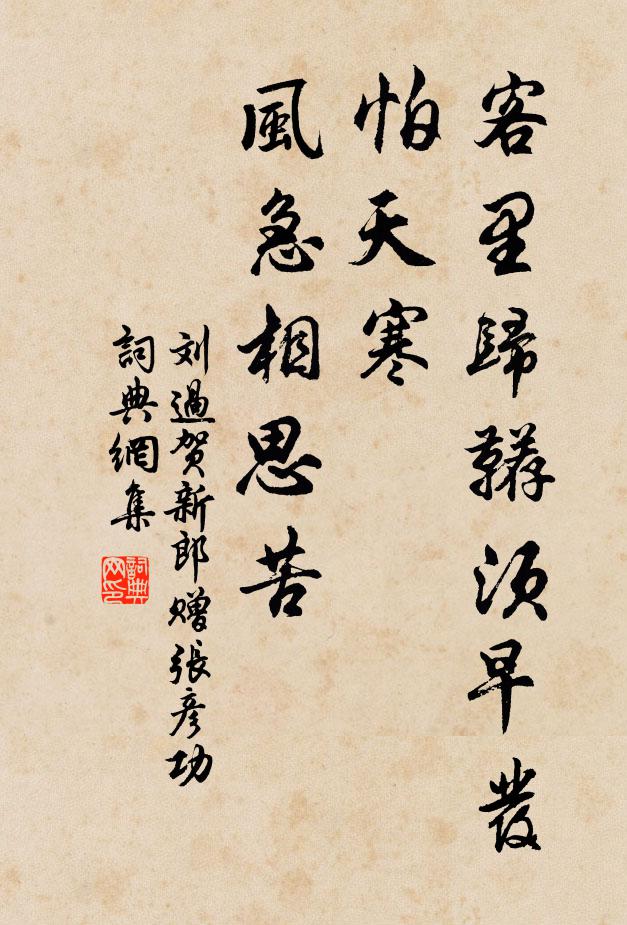 客里歸韉須早發
怕天寒
風急相思苦
刘過贺新郎赠張彥功
詞典網集
詞典网印